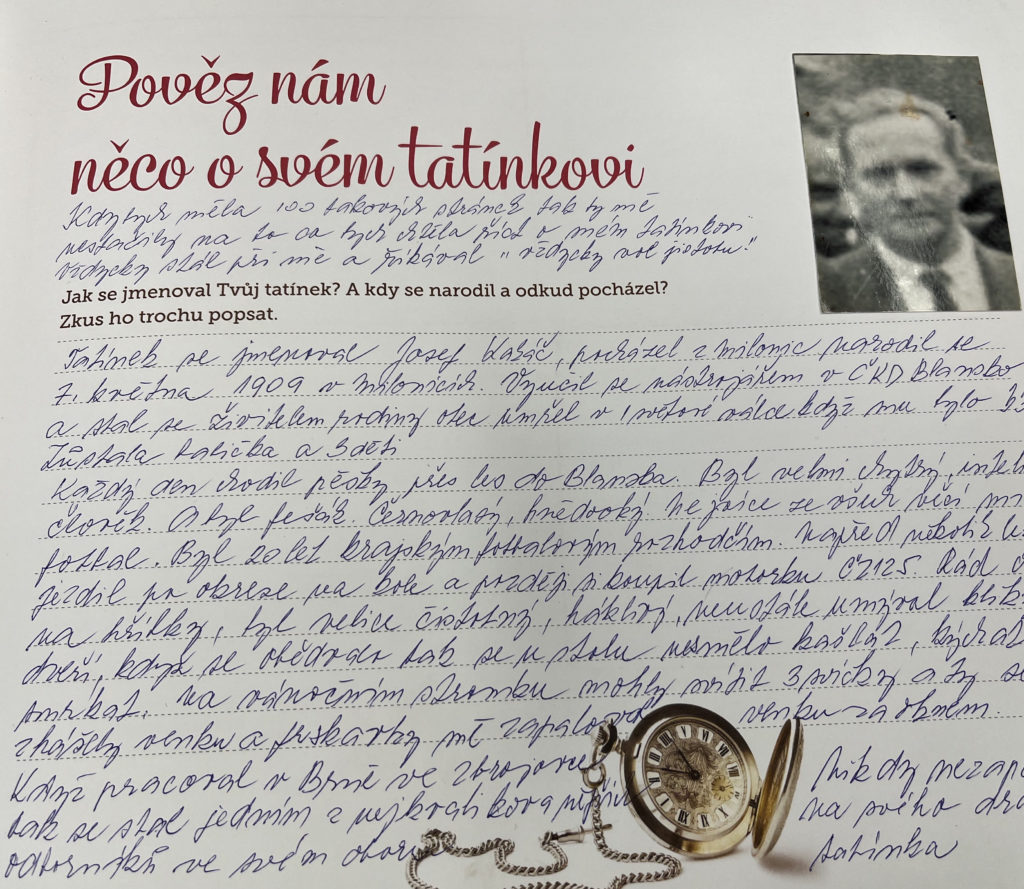 Pověz nám
něco o svém tatínkovi
Kdybych měla 100 takových stránek tak by mě
nestačily na to co bych chtěla říct o mém tatínkovi
vždycky stál při mě a říkával "vždycky vol jistotu."
Jak se jmenoval Tvůj tatínek? A kdy se narodil a odkud pocházel?
Zkus ho trochu popsat.
Tatínek se jmenoval Josef, pocházel z Milonic narodil se
7. května 1909 v Milonicích. Vyučil se nástrojářem v ČKD Blansko
a stal se živitelem rodiny otec umřel v 1 světové válce když mu bylo
Zůstala babička a 3 děti
Každý den chodil pěšky přes les do Blanska. Byl velmi chytrý,
člověk. A byl fešák. Černovlasý, hnědooký nejvíce ze všech věcí
fotbal. Byl 20 let krajským fotbalovým rozhodčím. Napřed několik
jezdil po okrese na kole a později si koupil motorku ČZ125. Rád
na hřibky, byl velice čistotný, háklivý, neustále umýval
dveří, když se obědvalo tak se u stolu nesmělo kašlat, kýchat
smrkat. Na vánočním stromku mohly svítit 3 svíčky a ty se
zhášely venku a prskavky mě zapaloval venku za oknem.
Když pracoval v Brně ve zbrojovce
tak se stal jedním z
odborníků ve svém oboru
Nikdy
na svého
tatínka